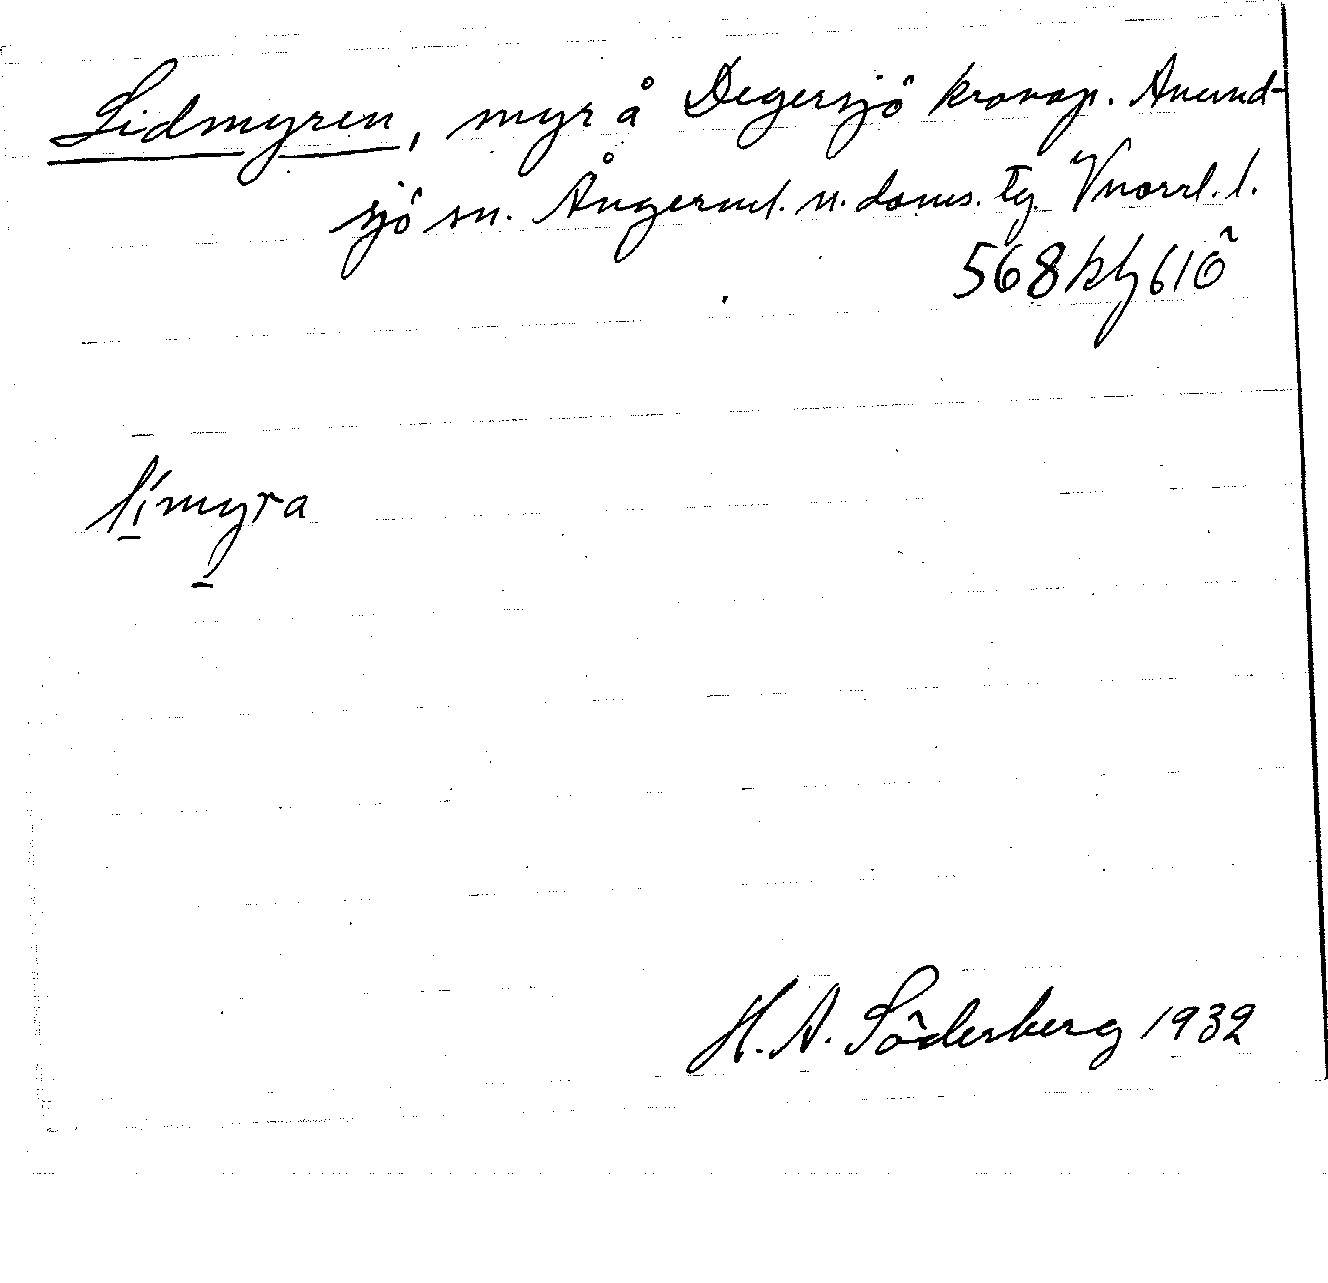 Lidmyren, myr å Degersjö kronop. Anund-
sjö sn. Ångerml. n. doms. tg Vnorrl. l.
568 kh 61ö
límyra
H. A. Söderberg 1932